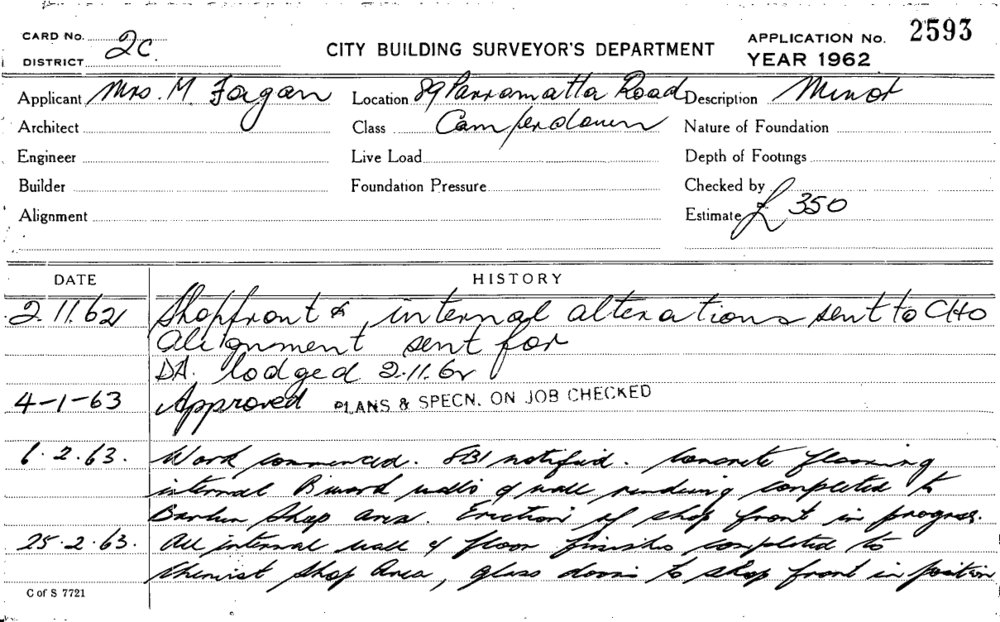 CARD No. 2c.
DISTRICT
CITY BUILDING SURVEYOR'S DEPARTMENT
APPLICATION No. 2593
YEAR 1962
Applicant Mrs. M. Fagan Location 89 Parramatta Road Description Minor
Architect Class Camperdown Nature of Foundation
Engineer Live Load Depth of Footings
Builder Foundation Pressure Checked by
Alignment Estimate £ 350
DATE HISTORY
2.11.62 Shopfront & internal alterations sent to CHO
Alignment sent for
DA. lodged 2.11.62
4-1-63 Approved PLANS & SPECN. ON JOB CHECKED
6.2.63. Work commenced. notified. Concrete flooring
internal walls & wall rendering completed to
Shop area. Erection of shop front in progress.
25.2.63. All internal wall & floor finishes completed to
Chemist Shop Area, glass doors to shop front in position
C of S 7721